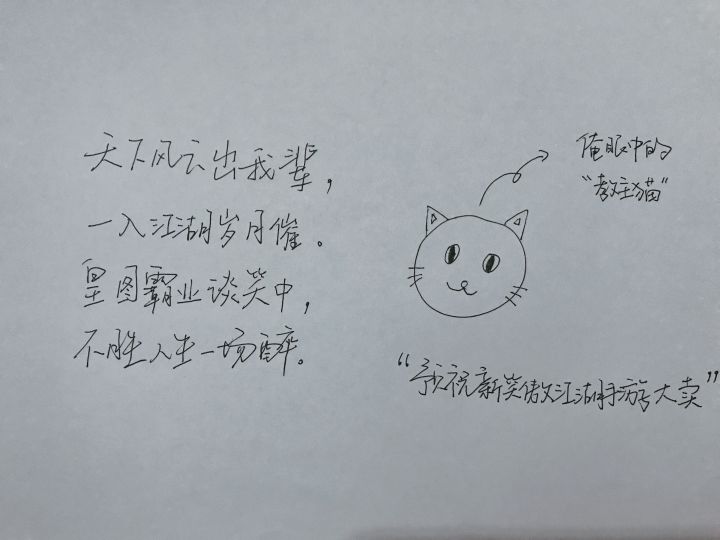 天下风云出我辈，
一入江湖岁月催。
皇图霸业谈笑中，
不胜人生一场醉。
俺眼中的
“教主猫”
“预祝新笑傲江湖手游大卖”